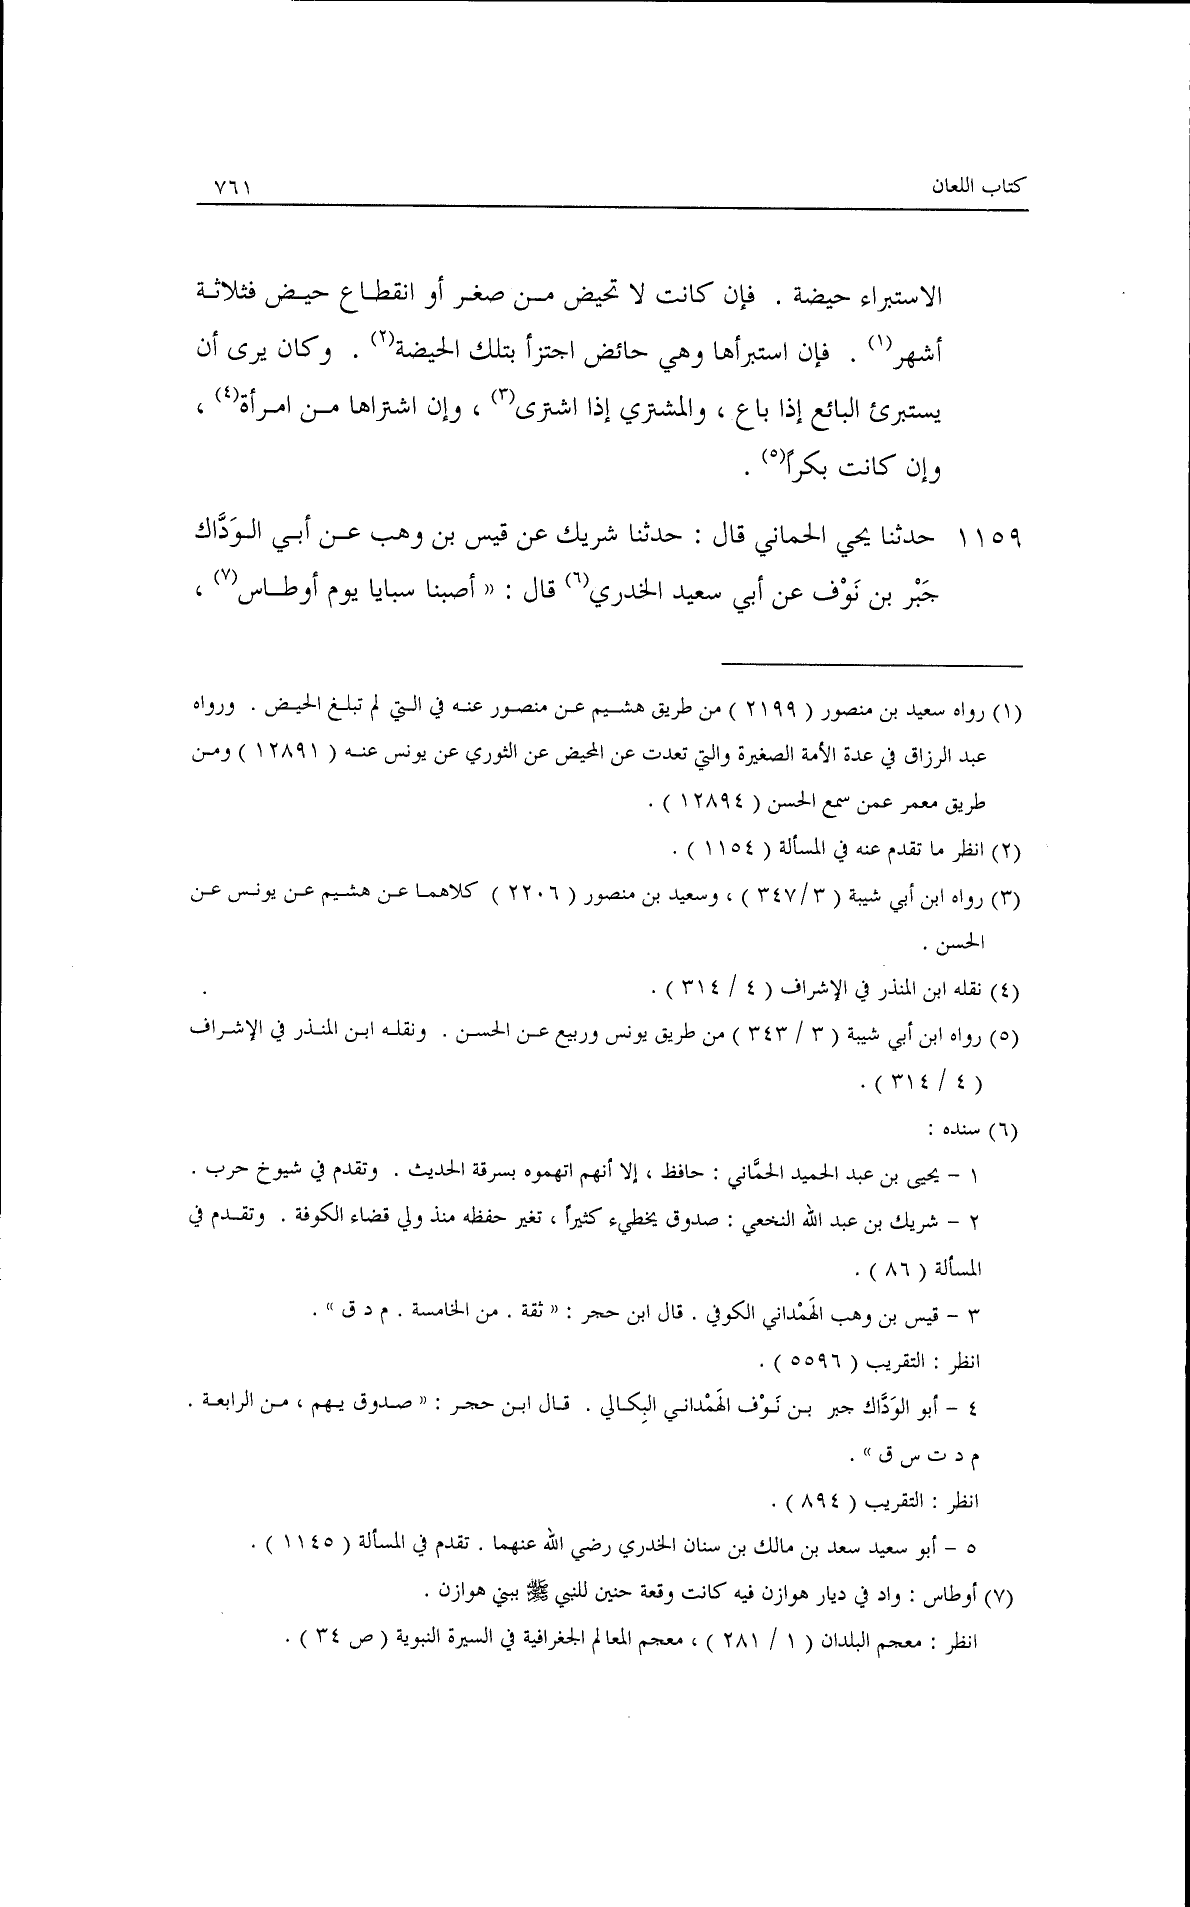 كتاب اللعان ٧٦١
الاستبراء حيضة . فإن كانت لا تحيض من صغر أو انقطاع حيض فثلاثة
أشهر(١) . فإن استبرأها وهي حائض اجتزأ بتلك الحيضة(٢) . وكان يرى أن
يستبرئ البائع إذا باع ، والمشتري إذا اشترى(٣) ، وإن اشتراها من امرأة(٤) ،
وإن كانت بكراً(٥) .
١١٥٩ حدثنا يحي الحماني قال : حدثنا شريك عن قيس بن وهب عن أبي الوَدَّاك
جَبْر بن نَوْف عن أبي سعيد الخدري(٦) قال : « أصبنا سبايا يوم أوطاس(٧) ،
(١) رواه سعيد بن منصور ( ٢١٩٩ ) من طريق هشيم عن منصور عنه في التي لم تبلغ الحيض . ورواه
عبد الرزاق في عدة الأمة الصغيرة والتي تعدت عن المحيض عن الثوري عن يونس عنه ( ١٢٨٩١ ) ومن
طريق معمر عمن سمع الحسن ( ١٢٨٩٤ ) .
(٢) انظر ما تقدم عنه في المسألة ( ١١٥٤ ) .
(٣) رواه ابن أبي شيبة ( ٣ /٣٤٧ ) ، وسعيد بن منصور ( ٢٢٠٦ ) كلاهما عن هشيم عن يونس عن
الحسن .
(٤) نقله ابن المنذر في الإشراف ( ٤ / ٣١٤ ) .
(٥) رواه ابن أبي شيبة ( ٣ / ٣٤٣ ) من طريق يونس وربيع عن الحسن . ونقله ابن المنذر في الإشراف
( ٤ / ٣١٤ ) .
(٦) سنده :
١ - يحيى بن عبد الحميد الحمَّاني : حافظ ، إلا أنهم اتهموه بسرقة الحديث . وتقدم في شيوخ حرب .
٢ - شريك بن عبد الله النخعي : صدوق يخطيء كثيراً ، تغير حفظه منذ ولي قضاء الكوفة . وتقدم في
المسألة ( ٨٦ ) .
٣ - قيس بن وهب الهَمْداني الكوفي . قال ابن حجر : « ثقة . من الخامسة . م د ق » .
انظر : التقريب ( ٥٥٩٦ ) .
٤ - أبو الوَدَّاك جبر بن نَوْف الهَمْداني البِكالي . قال ابن حجر : « صدوق يهم ، من الرابعة .
م د ت س ق » .
انظر : التقريب ( ٨٩٤ ) .
٥ - أبو سعيد سعد بن مالك بن سنان الخدري رضي الله عنهما . تقدم في المسألة ( ١١٤٥ ) .
(٧) أوطاس : واد في ديار هوازن فيه كانت وقعة حنين للنبي ﷺ ببني هوازن .
انظر : معجم البلدان ( ١ / ٢٨١ ) ، معجم المعالم الجغرافية في السيرة النبوية ( ص ٣٤ ) .